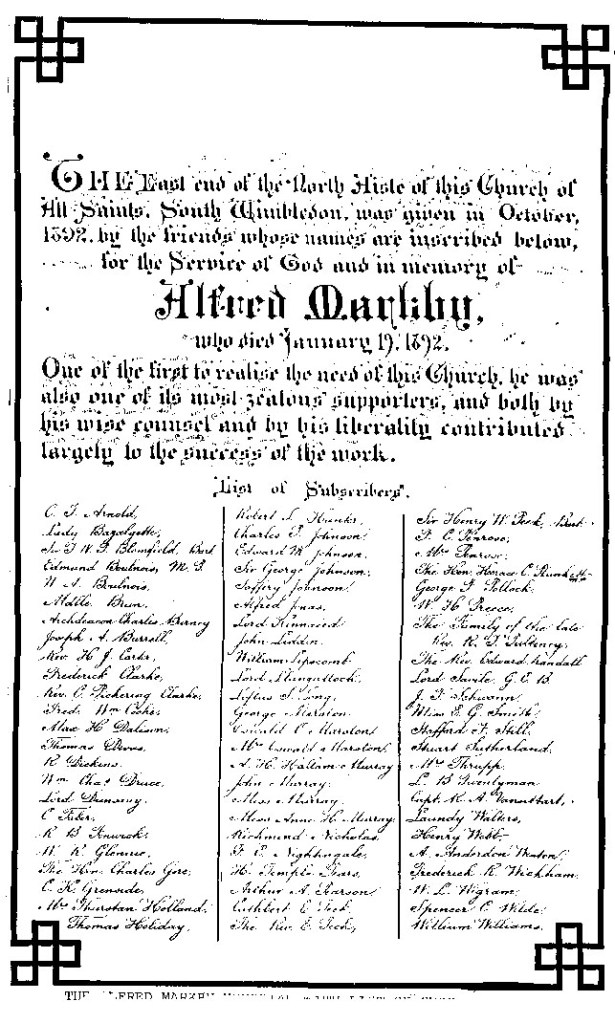 THE East end of the North Aisle of this Church of
All Saints, South Wimbledon, was given in October,
1892, by the friends whose names are inscribed below,
for the Service of God and in memory of
Alfred Markby,
who died January 19, 1892.
One of the first to realise the need of this Church, he was
also one of its most zealous supporters, and both by
his wise counsel and by his liberality contributed
largely to the success of the work.
List of Subscribers.
Arnold,
Lady Bazalgette,
Blomfield, Bart
Edmund Boulnois, M.P.
Boulnois,
Brun.
Archdeacon Charles Burney
Joseph A. Burrell,
Rev. H. J. Carter,
Frederick Clarke,
Rev. C. Pickering Clarke,
Fred. Wm Cooke,
Max H. Dalison,
Thomas
R. Dickens.
Wm Chas Druce,
Lord Dunsany
C.
R. B. Fenwick,
W. R.
The Hon. Charles Gore,
C. K. Grenside,
Mrs Thurstan Holland,
Thomas Holiday,
Robert L. Hunter,
Charles P. Johnson,
Edward M. Johnson,
Sir George Johnson,
Johnson,
Alfred Jonas,
Lord Kinnaird
John
William Lipscomb
Lord
Long,
George Marston,
Oswald C. Marston
Mrs Oswald Marston,
A. H. Hallam Murray
John Murray,
Miss Murray,
Miss Anne H. Murray,
Richmund Nicholas,
F. E. Nightingale,
H. Temple
Arthur A. Pearson,
Cuthbert E. Peek,
The Rev. E. Peek,
Sir Henry W. Peek, Bart.
F. C. Penrose,
Mrs Penrose,
The Hon. Horace C. Plunkett
George F. Pollock,
W. H. Preece,
The Family of the late
Rev. R. T. Pulteney,
The Rev. Edward Randall
Lord Savile, G.C.B
J. F. Schwann,
Miss E. G. Smith,
Stafford F. Still,
Stuart Sutherland,
Mrs Thrupp,
L. B. Twentyman
Capt. R. A. Vansittart,
Laundy Walters,
Henry Webb,
A. Anderdon Weston,
Frederick R. Wickham,
W. L. Wigram,
Spencer C. Wilde
William Williams.
THE ALFRED MARKBY